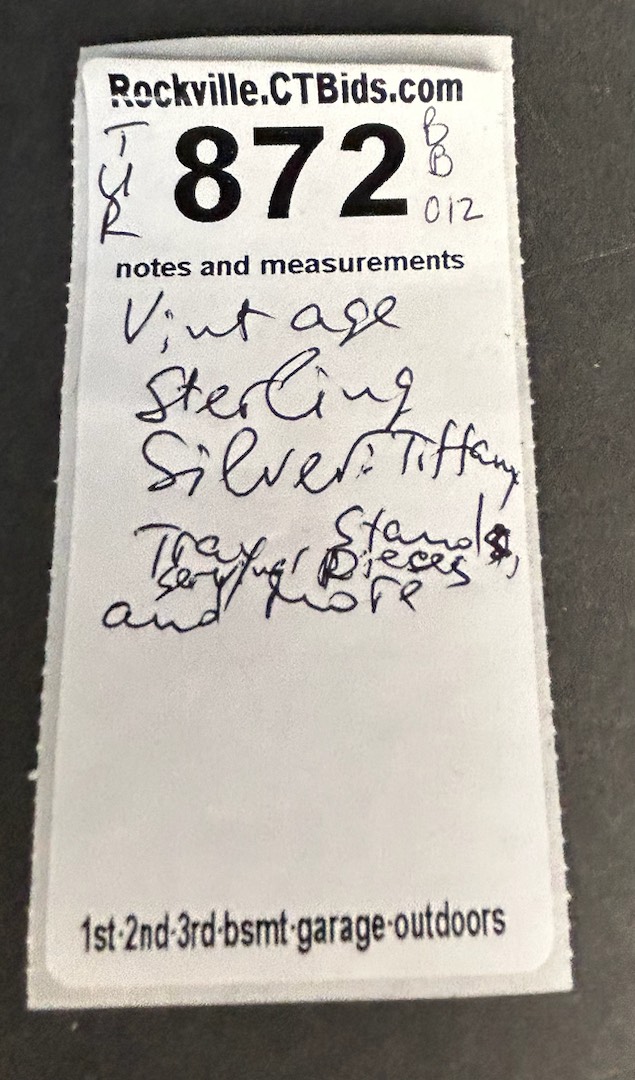 Rockville.CTBids.com
TUR 872 BB 012
notes and measurements
Vintage
Sterling
Silver: Tiffany
Tray, Stands,
serving pieces
and more
1st·2nd·3rd·bsmt·garage·outdoors